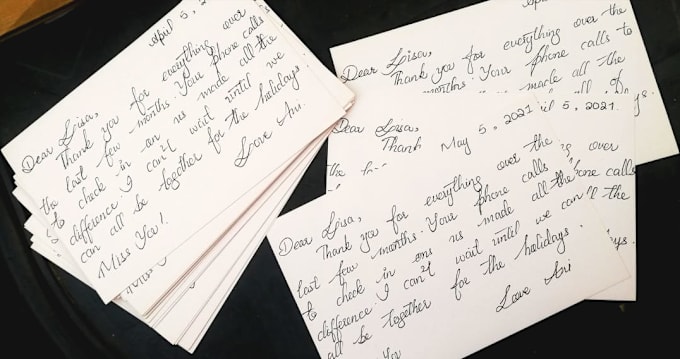 April 5, 2
Dear Lisa,
Thank you for everything over
the last few months. Your phone calls
to check in on us made all the
difference. I can't wait until we
can all be together for the holidays.
Love Ari.
Miss You!
Dear Lisa,
Thank you for everything over the
months. Your phone calls to
made all the
all of
ys.
Dear Lisa,
il 5, 2021.
Thank
over
phone calls
the
ys.
May 5, 2021
Dear Lisa,
Thank you for everything over the
last few months. Your phone calls
to check in ons us made all the
difference. I can't wait until we can
all be together for the holidays.
Love Ari
You